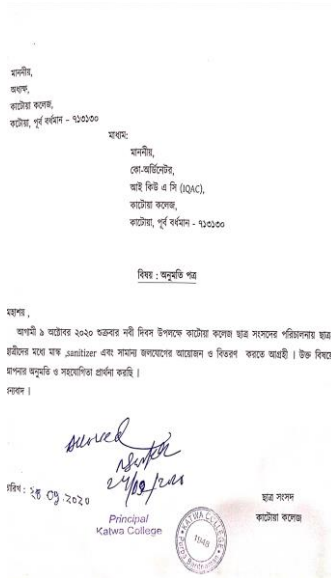 মাননীয়,
অধ্যক্ষ,
কাটোয়া কলেজ,
কাটোয়া, পূর্ব বর্ধমান – ৭১৩১৩০
মাধ্যম:
মাননীয়,
কো-অর্ডিনেটর,
আই কিউ এ সি (IQAC),
কাটোয়া কলেজ,
কাটোয়া, পূর্ব বর্ধমান – ৭১৩১৩০
বিষয় : অনুমতি পত্র
মহাশয় ,
আগামী ৯ অক্টোবর ২০২০ শুক্রবার নবী দিবস উপলক্ষে কাটোয়া কলেজ ছাত্র সংসদের পরিচালনায় ছাত্র
ছাত্রীদের মধ্যে মাস্ক ,sanitizer এবং সামান্য জলযোগের আয়োজন ও বিতরণ করতে আগ্রহী । উক্ত বিষয়ে
আপনার অনুমতি ও সহযোগিতা প্রার্থনা করছি ।
ধন্যবাদ ।
তারিখ : ২৪.০৯.২০২০
ছাত্র সংসদ
Principal
কাটোয়া কলেজ
Katwa College
KATWA COLLEGE
1948